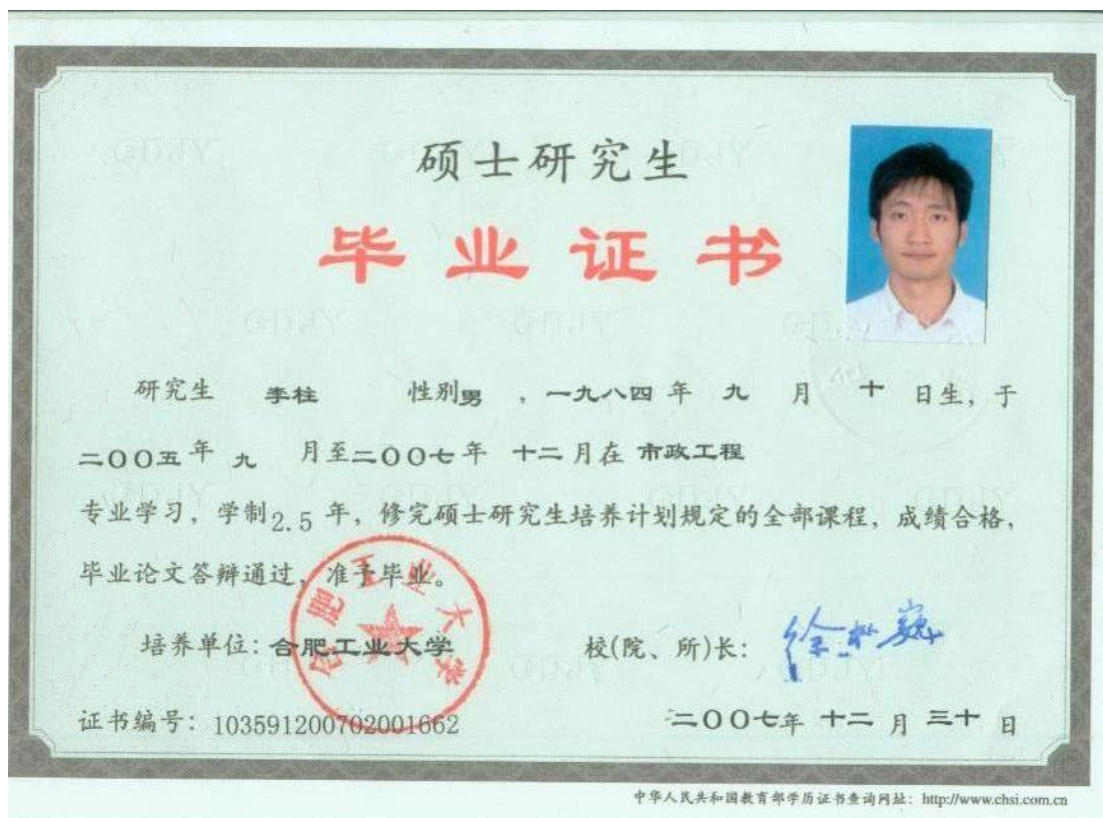 硕士研究生
毕业证书
研究生 李柱 性别男 ，一九八四 年 九 月 十 日生，于
二〇〇五 年 九 月至二〇〇七 年 十二 月在 市政工程
专业学习，学制2.5 年，修完硕士研究生培养计划规定的全部课程，成绩合格，
毕业论文答辩通过，准予毕业。
合肥工业大学
培养单位：合肥工业大学 校(院、所)长：徐枞巍
证书编号：103591200702001662 二〇〇七年 十二 月 三十 日
中华人民共和国教育部学历证书查询网址：http://www.chsi.com.cn